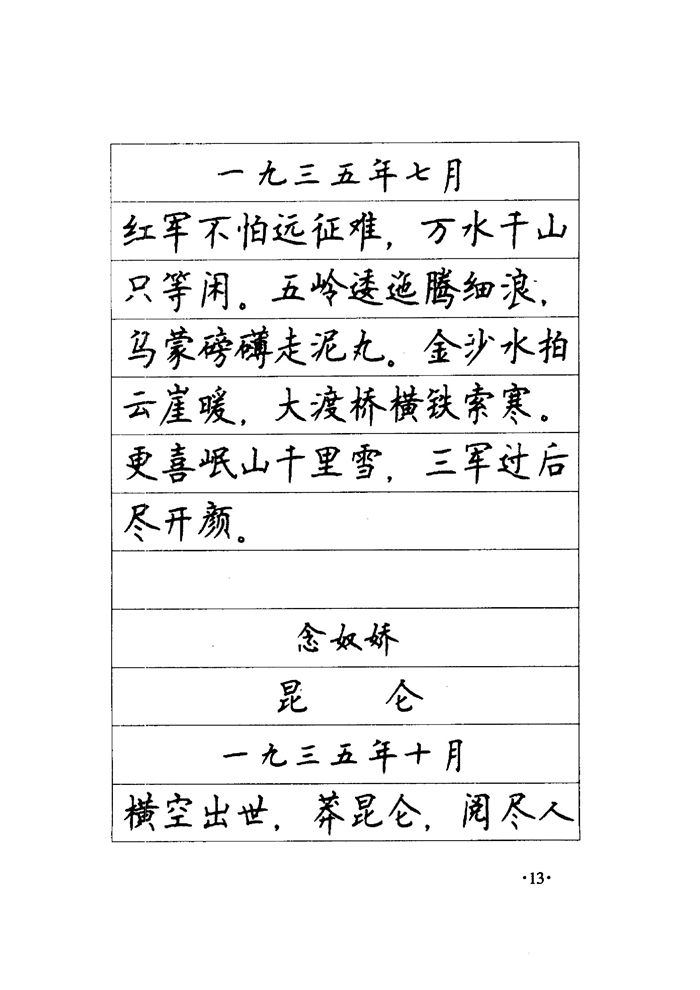 一九三五年七月
红军不怕远征难，万水千山
只等闲。五岭逶迤腾细浪，
乌蒙磅礴走泥丸。金沙水拍
云崖暖，大渡桥横铁索寒。
更喜岷山千里雪，三军过后
尽开颜。
念奴娇
昆 仑
一九三五年十月
横空出世，莽昆仑，阅尽人
·13·